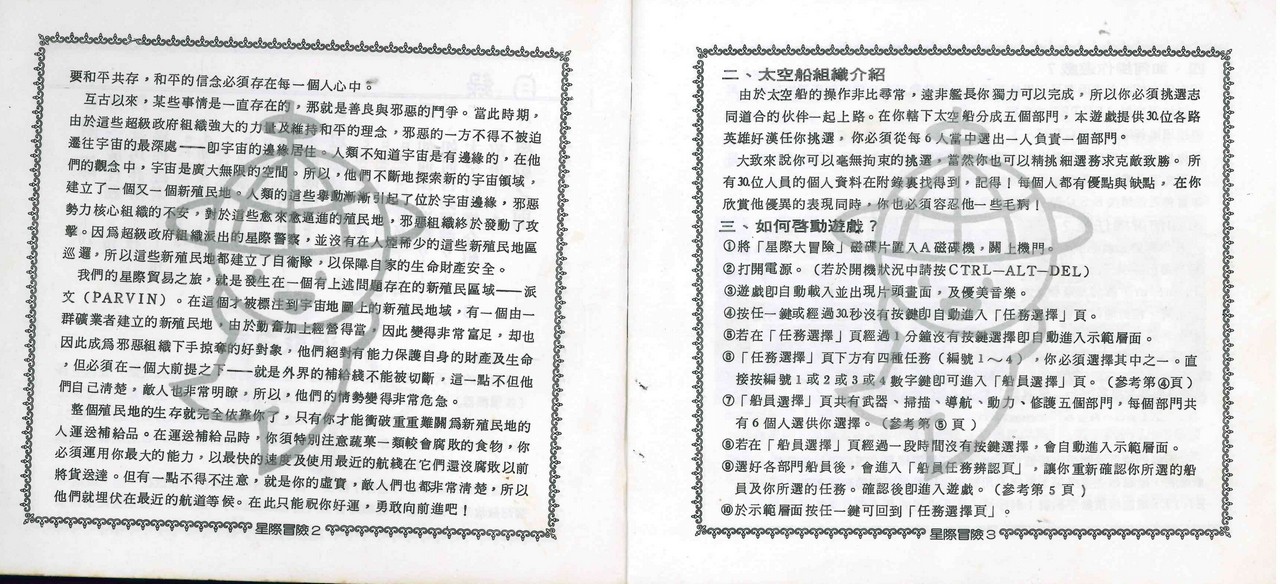 要和平共存，和平的信念必須存在每一個人心中。
亙古以來，某些事情是一直存在的，那就是善良與邪惡的鬥爭。當此時期，
由於這些超級政府組織強大的力量及維持和平的理念，邪惡的一方不得不被迫
遷往宇宙的最深處——即宇宙的邊緣居住。人類不知道宇宙是有邊緣的，在他
們的觀念中，宇宙是廣大無限的空間。所以，他們不斷地探索新的宇宙領域，
建立了一個又一個新殖民地。人類的這些舉動漸漸引起了位於宇宙邊緣，邪惡
勢力核心組織的不安，對於這些愈來愈逼進的殖民地，邪惡組織終於發動了攻
擊。因爲超級政府組織派出的星際警察，並沒有在人煙稀少的這些新殖民地區
巡邏，所以這些新殖民地都建立了自衞隊，以保障自家的生命財產安全。
我們的星際貿易之旅，就是發生在一個有上述問題存在的新殖民區域——派
文（PARVIN）。在這個才被標注到宇宙地圖上的新殖民地域，有一個由一
群礦業者建立的新殖民地，由於勤奮加上經營得當，因此變得非常富足，却也
因此成爲邪惡組織下手掠奪的好對象，他們絕對有能力保護自身的財產及生命
，但必須在一個大前提之下——就是外界的補給綫不能被切斷，這一點不但他
們自己清楚，敵人也非常明瞭，所以，他們的情勢變得非常危急。
整個殖民地的生存就完全依靠你了，只有你才能衝破重重難關爲新殖民地的
人運送補給品。在運送補給品時，你須特別注意蔬菜一類較會腐敗的食物，你
必須運用你最大的能力，以最快的速度及使用最近的航綫在它們還沒腐敗以前
將貨送達。但有一點不得不注意，就是你的虛實，敵人們也都非常清楚，所以
他們就埋伏在最近的航道等候。在此只能祝你好運，勇敢向前進吧！
星際冒險2
二、太空船組織介紹
由於太空船的操作非比尋常，遠非艦長你獨力可以完成，所以你必須挑選志
同道合的伙伴一起上路。在你轄下太空船分成五個部門，本遊戲提供30.位各路
英雄好漢任你挑選，你必須從每6人當中選出一人負責一個部門。
大致來說你可以毫無拘束的挑選，當然你也可以精挑細選務求克敵致勝。所
有30.位人員的個人資料在附錄裏找得到，記得！每個人都有優點與缺點，在你
欣賞他優異的表現同時，你也必須容忍他一些毛病！
三、如何啓動遊戲？
①將「星際大冒險」磁碟片置入A磁碟機，關上機門。
②打開電源。（若於開機狀況中請按CTRL—ALT—DEL）
③遊戲即自動載入並出現片頭畫面，及優美音樂。
④按任一鍵或經過30.秒沒有按鍵即自動進入「任務選擇」頁。
⑤若在「任務選擇」頁經過1分鐘沒有按鍵選擇即自動進入示範層面。
⑥「任務選擇」頁下方有四種任務（編號1～4），你必須選擇其中之一。直
接按編號1或2或3或4數字鍵即可進入「船員選擇」頁。（參考第④頁）
⑦「船員選擇」頁共有武器、掃描、導航、動力、修護五個部門，每個部門共
有6個人選供你選擇。（參考第⑤頁）
⑧若在「船員選擇」頁經過一段時間沒有按鍵選擇，會自動進入示範層面。
⑨選好各部門船員後，會進入「船員任務辨認頁」，讓你重新確認你所選的船
員及你所選的任務。確認後即進入遊戲。（參考第5頁）
⑩於示範層面按任一鍵可回到「任務選擇頁」。
星際冒險3